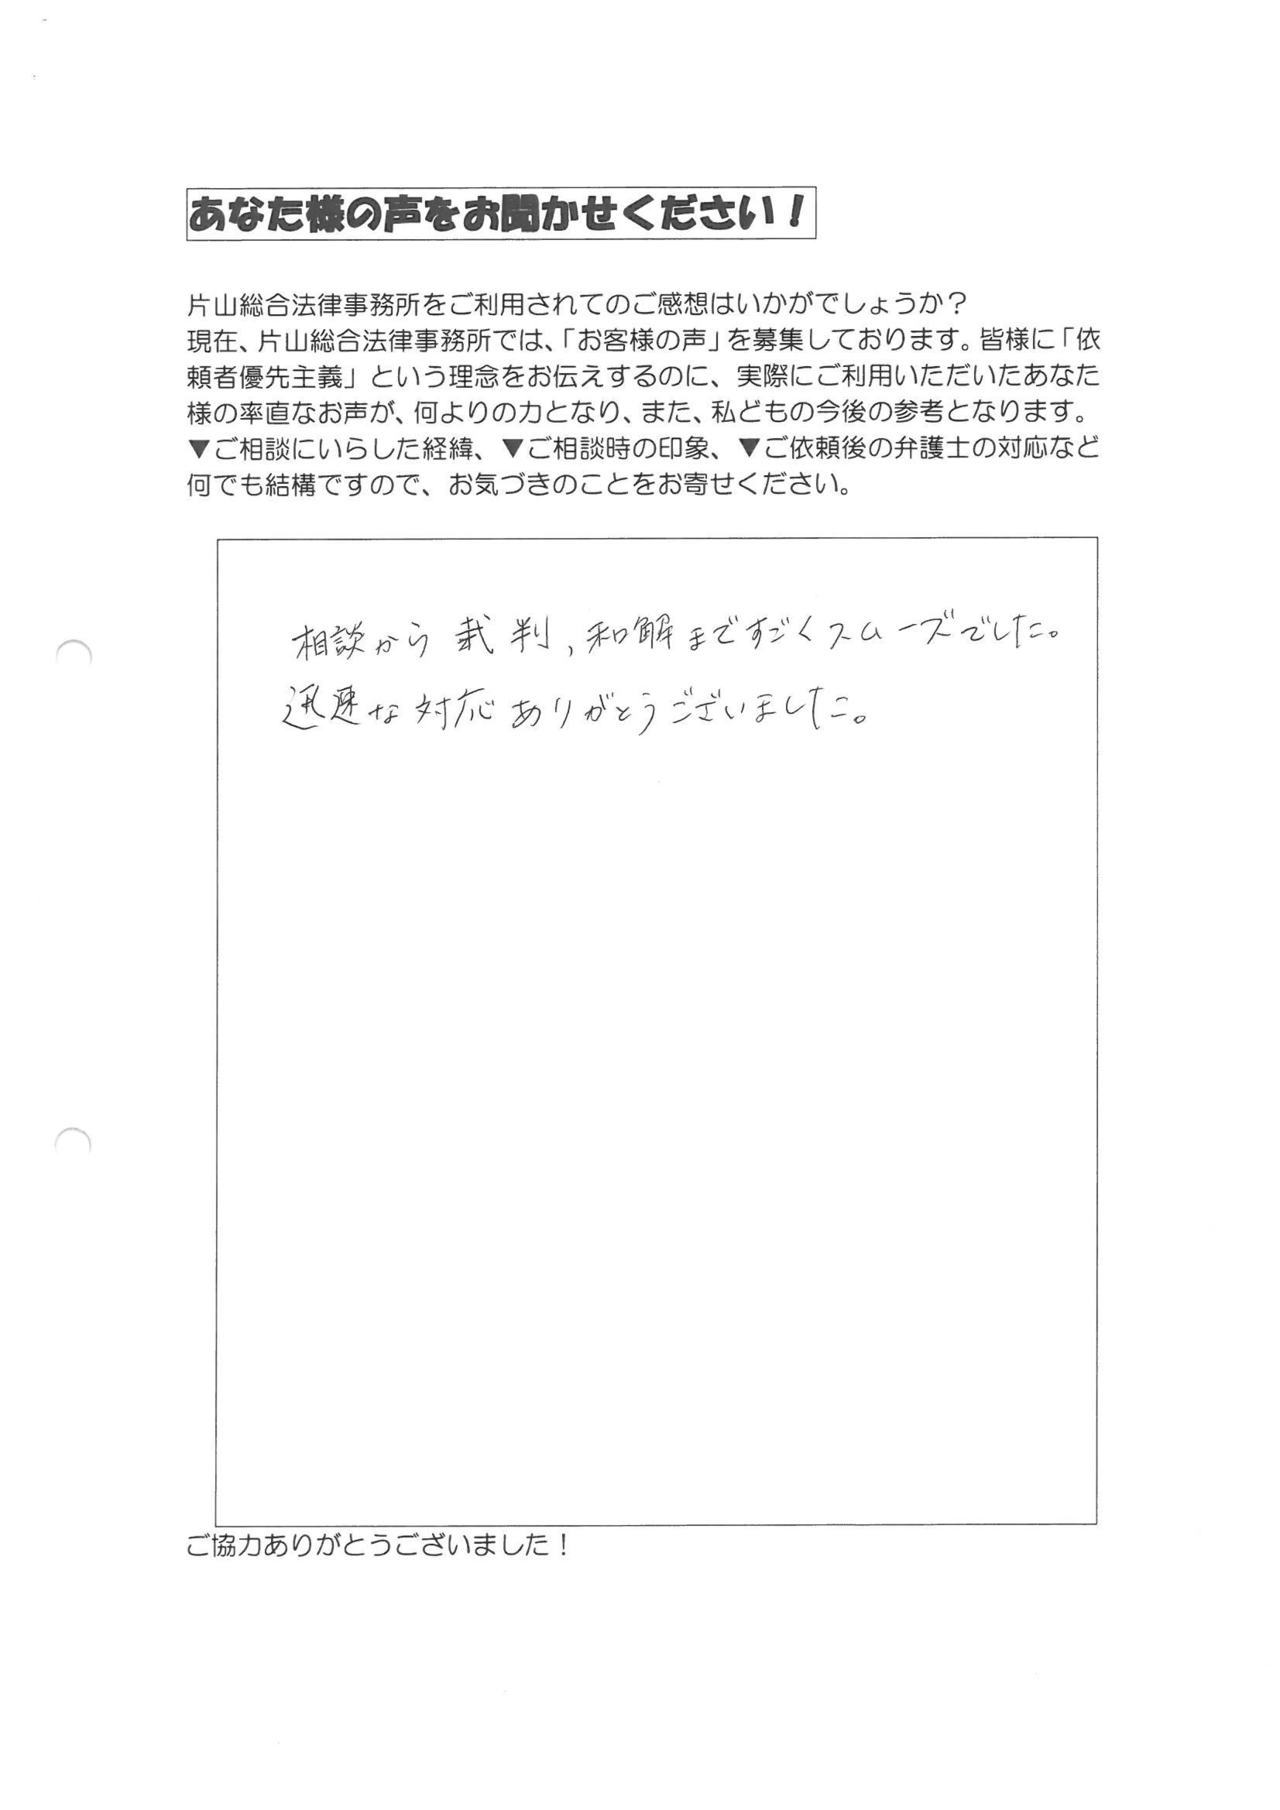 あなた様の声をお聞かせください！
片山総合法律事務所をご利用されてのご感想はいかがでしょうか？
現在、片山総合法律事務所では、「お客様の声」を募集しております。皆様に「依
頼者優先主義」という理念をお伝えするのに、実際にご利用いただいたあなた
様の率直なお声が、何よりの力となり、また、私どもの今後の参考となります。
▼ご相談にいらした経緯、▼ご相談時の印象、▼ご依頼後の弁護士の対応など
何でも結構ですので、お気づきのことをお寄せください。
相談から裁判，和解まですごくスムーズでした。
迅速な対応ありがとうございました。
ご協力ありがとうございました！